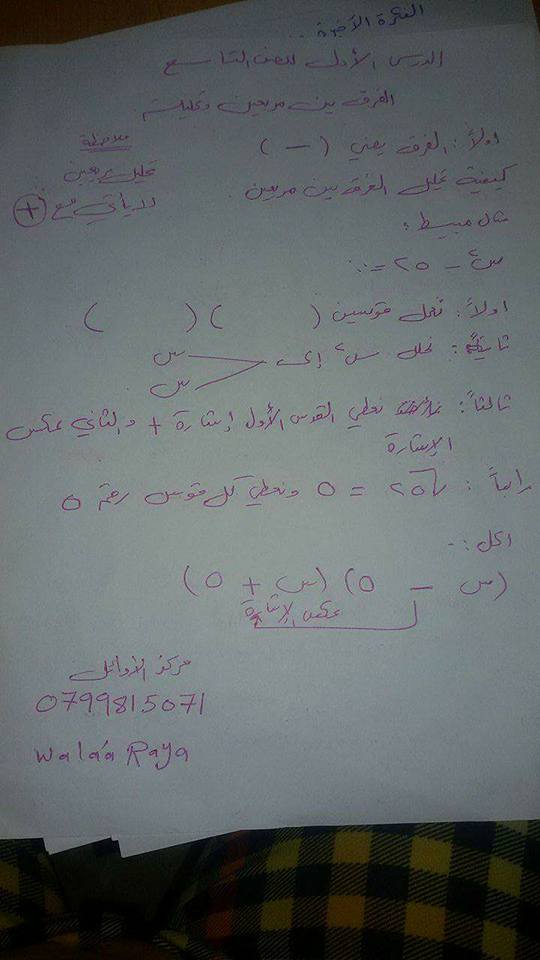 النشرة الأخيرة ..
الدرس الأول للصف التاسع
الفرق بين مربعين وتحليله
اولاً: الفرق يعني ( — )
ملاحظة
تحليل مربعين
لا يأتي مع +
كيفية تحليل الفرق بين مربعين
مثال مبسيط:
س² - ٢٥ = ::
اولاً: نعمل قوسين (        ) (        )
ثانياً: نحلل س² إلى س
س
ثالثاً: نعطي القوس الأول إشارة + والثاني عكس
الإشارة
رابعاً: √٢٥ = ٥ ونعطي كل قوس رقم ٥
الحل :-
(س - ٥) (س + ٥)
عكس الإشارة
مركز الأوائل
0799815071
Wala'a Raya